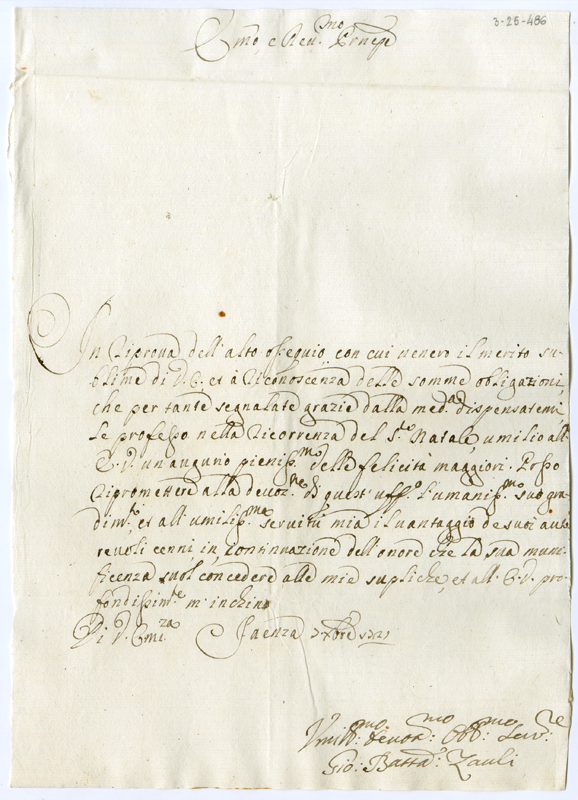 3-25-486
Emo, e Reu.mo Prnēpe
In riprova dell'alto ossequio, con cui venero il merito su-
blime di V. E. et à riconoscenza delle somme obligazioni,
che per tante segnalate grazie dalla med.a dispensatemi
le professo nella ricorrenza del S.to Natale, umilio all'
E. V. un augurio pieniss.mo delle felicità maggiori. Posso
ripromettere alla devoz.ne di quest'uff.o l'umaniss.mo suo gra-
dim.to, et all'umiliss.ma servitù mia il vantaggio de suoi auto-
revoli cenni, in continuazione dell'onore che la sua muni-
ficenza suol concedere alle mie supliche, et all'E. V. pro-
fondissim.te m'inchino
Di V. Em.za Faenza
Vmill.mo: Devot.mo Obb.mo: Serv.re:
Gio: Batta: Zauli